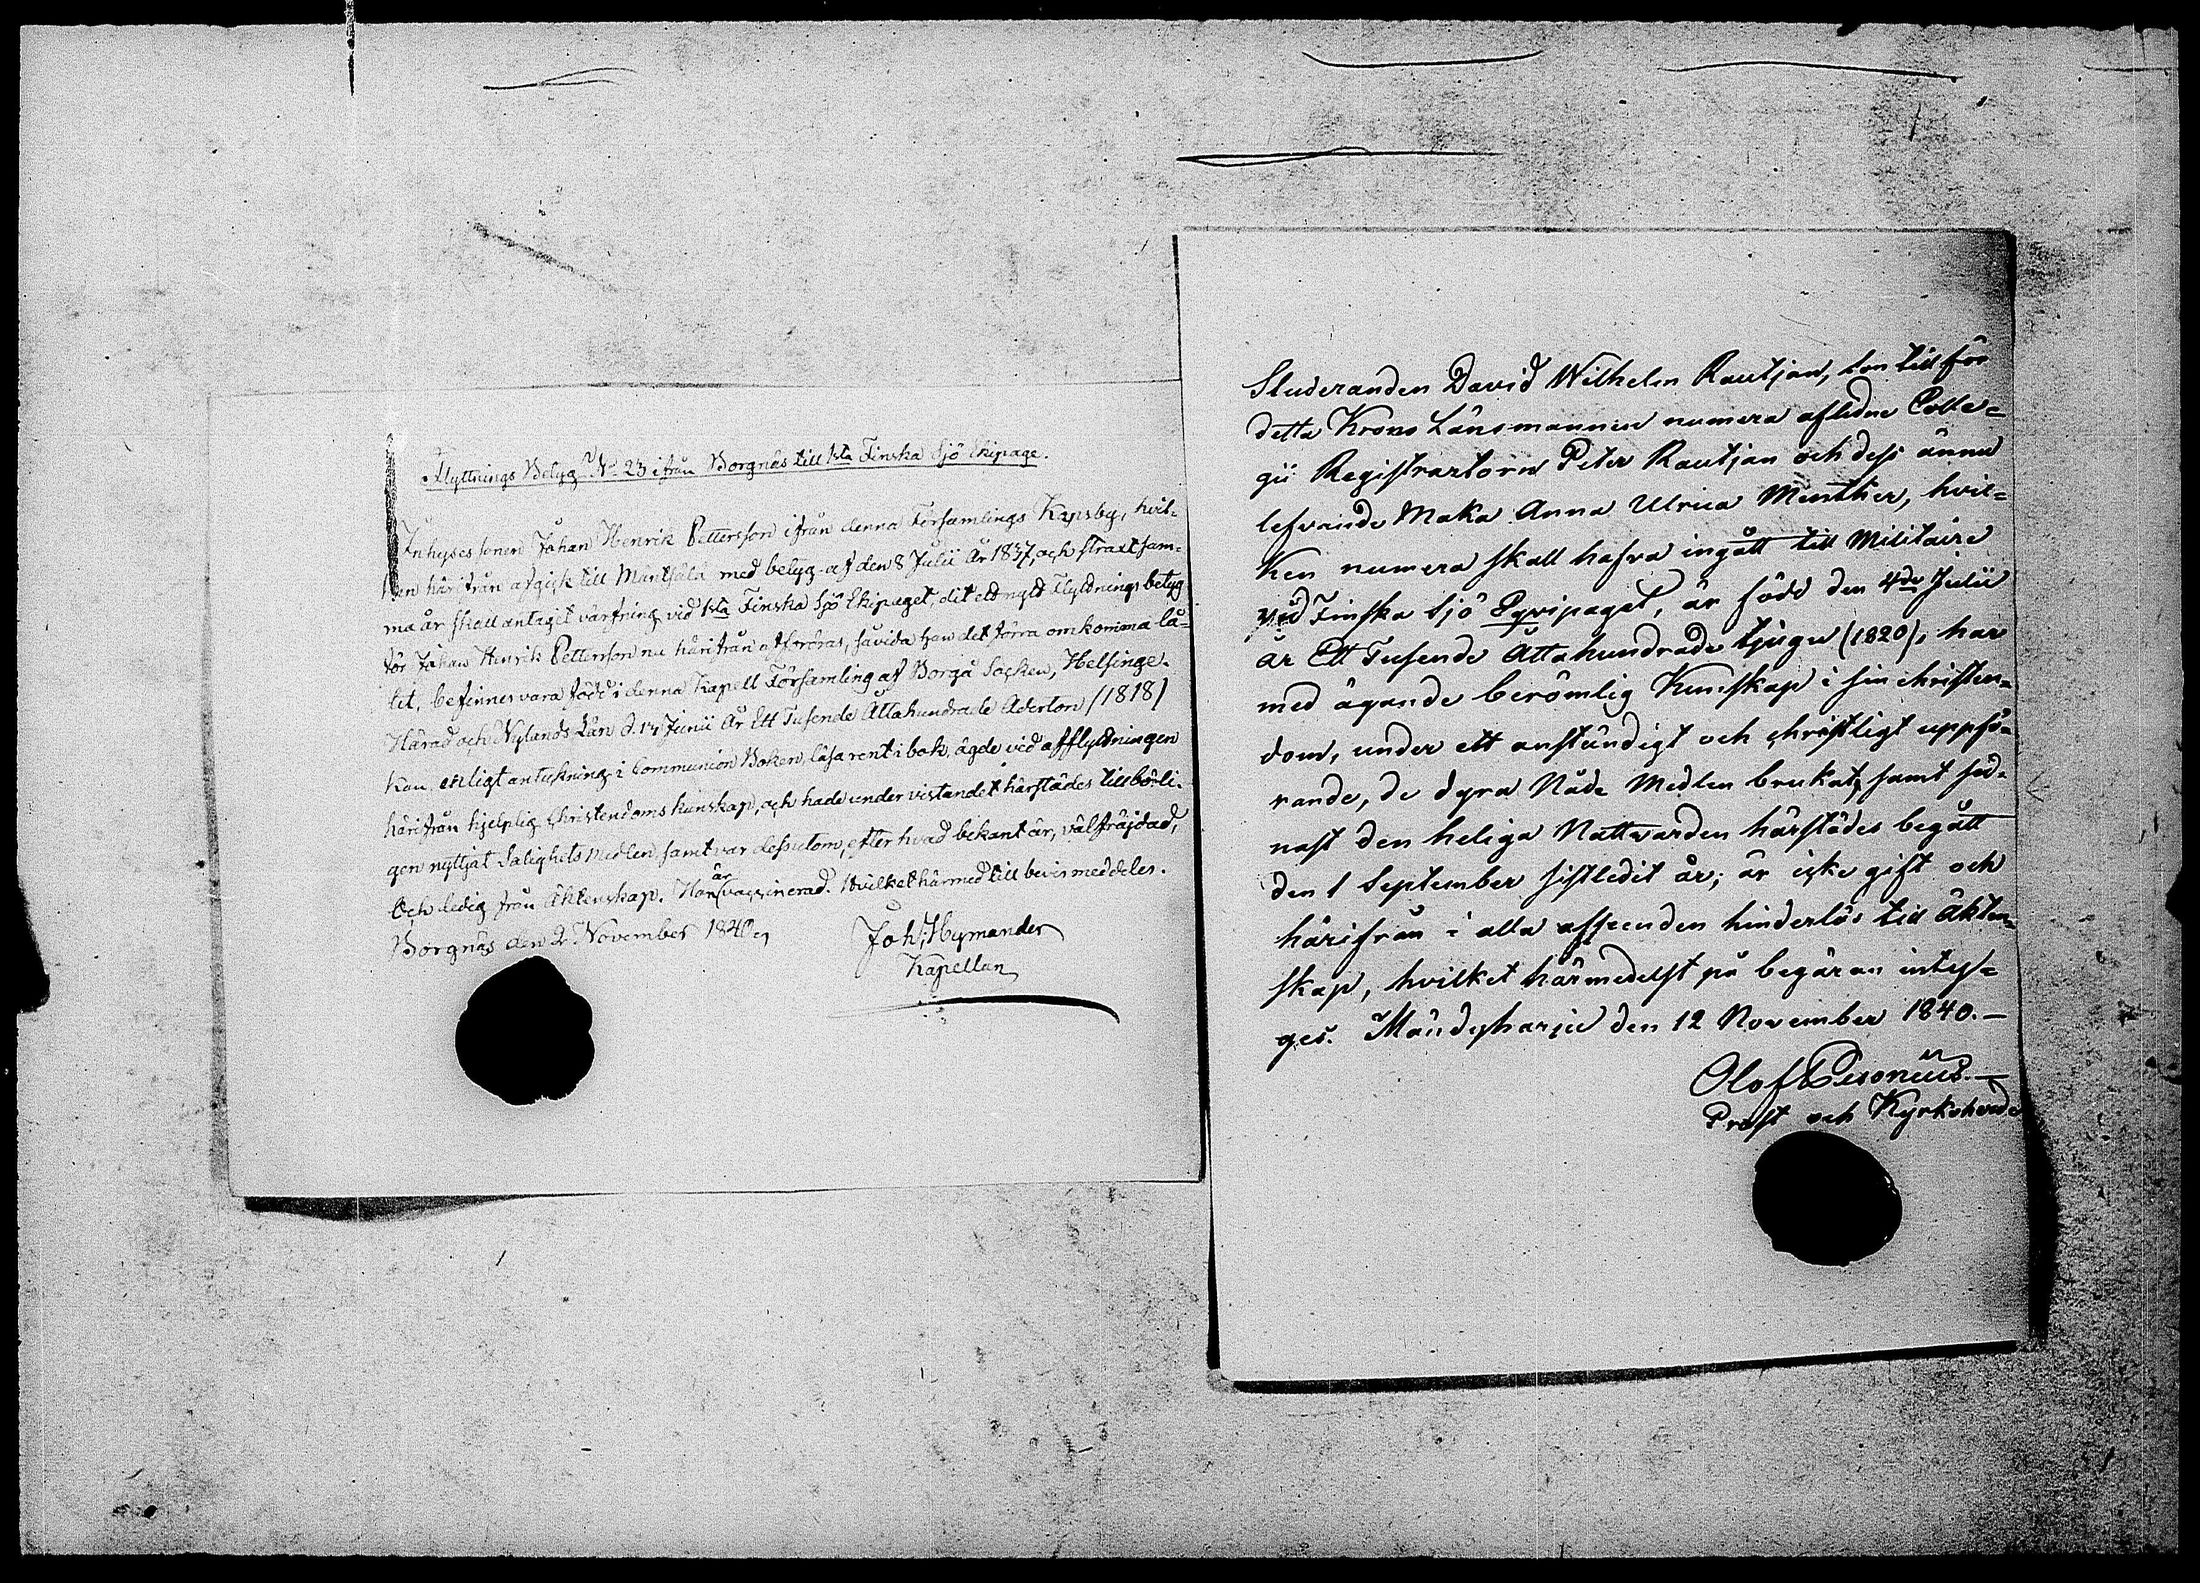 Flyttnings Betyg No 23 ifrån Borgnäs till 1sta Finska Sjö Ekipage.
Inhyses sonen Johan Henrik Pettersson ifrån denna Församlings Kapsby, hvil-
ken härifrån afgick till Mäntsälä med betyg af den 8 Julii År 1837, och straxt sam-
ma år skall antagit värfning vid 1sta Finska Sjö Ekipaget, dit ett nytt Flyttnings betyg
för Johan Henrik Pettersson nu härifrån affordras, såvida han det förra omkomma lå-
tit, befinnes vara född i denna Kapell Församling af Borgå Socken, Helsinge
Härad och Nylands Län d. 17 Junii År Ett Tusende Åttahundrade Aderton /1818/
kan, enligt anteckning i Communion Boken, läsa rent i bok, ägde vid afflyttningen
härifrån hjelplig Christendoms kunskap, och hade under vistandet härstädes tillbörli-
gen nyttjat Salighets Medlen, samt var dessutom, efter hvad bekant är, välfräjdad,
och ledig från Äktenskap. Han är vaccinerad. Hvilket härmed till bevis meddeles.
Borgnäs den 2 November 1840
Joh: Hymander
Kapellan
Studeranden David Wilhelm Rautjan, son till för
detta Krono Länsmannen numera aflidne Colle=
gii Registratorn Peter Rautjan och dess ännu
lefvande Maka Anna Ulrica Menther, hvil=
ken numera skall hafva ingått till Militaire
vid Finska Sjö Eqvipaget, är född den 4de Julii
år Ett Tusende Åttahundrade tjugu (1820), har
med ägande berömlig Kunskap i sin christen=
dom, under ett anständigt och christligt uppfö=
rande, de dyra Nåde Medlen brukat, samt sed=
nast den heliga Nattvarden härstädes begått
den 1 September sistledit år; är icke gift och
härifrån i alla afseenden hinderlös till Äkten=
skap, hvilket härmedelst på begäran intyg=
ges. Mändyharju den 12 November 1840.—
Olof Pesonius.—
Prost och Kyrkoherde